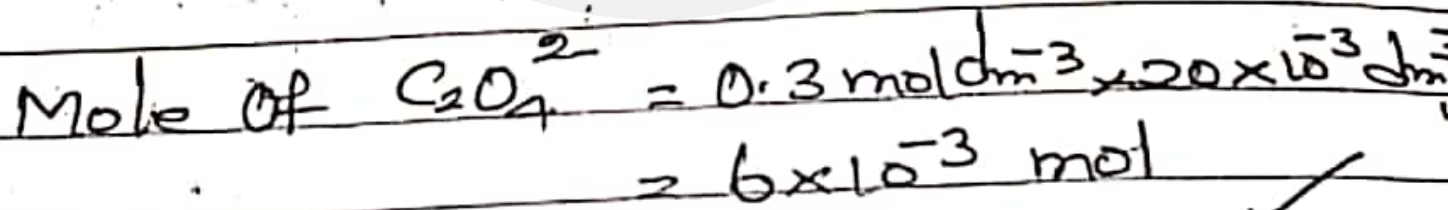 Mole Of C₂O₄²⁻ = 0.3 moldm⁻³ × 20 × 10⁻³ dm³
= 6×10⁻³ mol